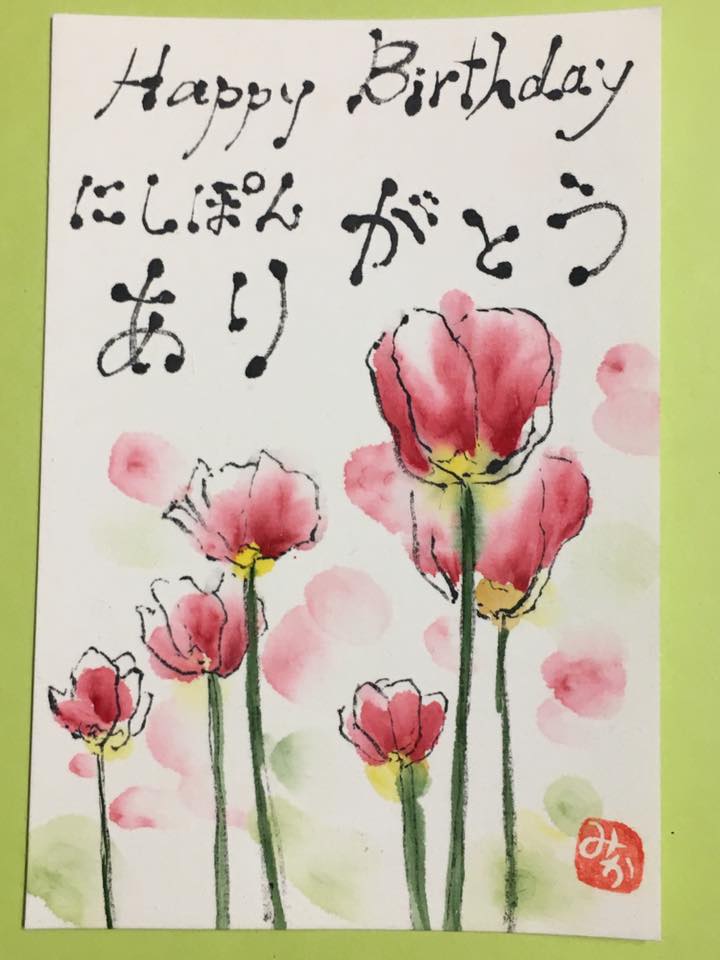 Happy Birthday
にしぽん
ありがとう
みか